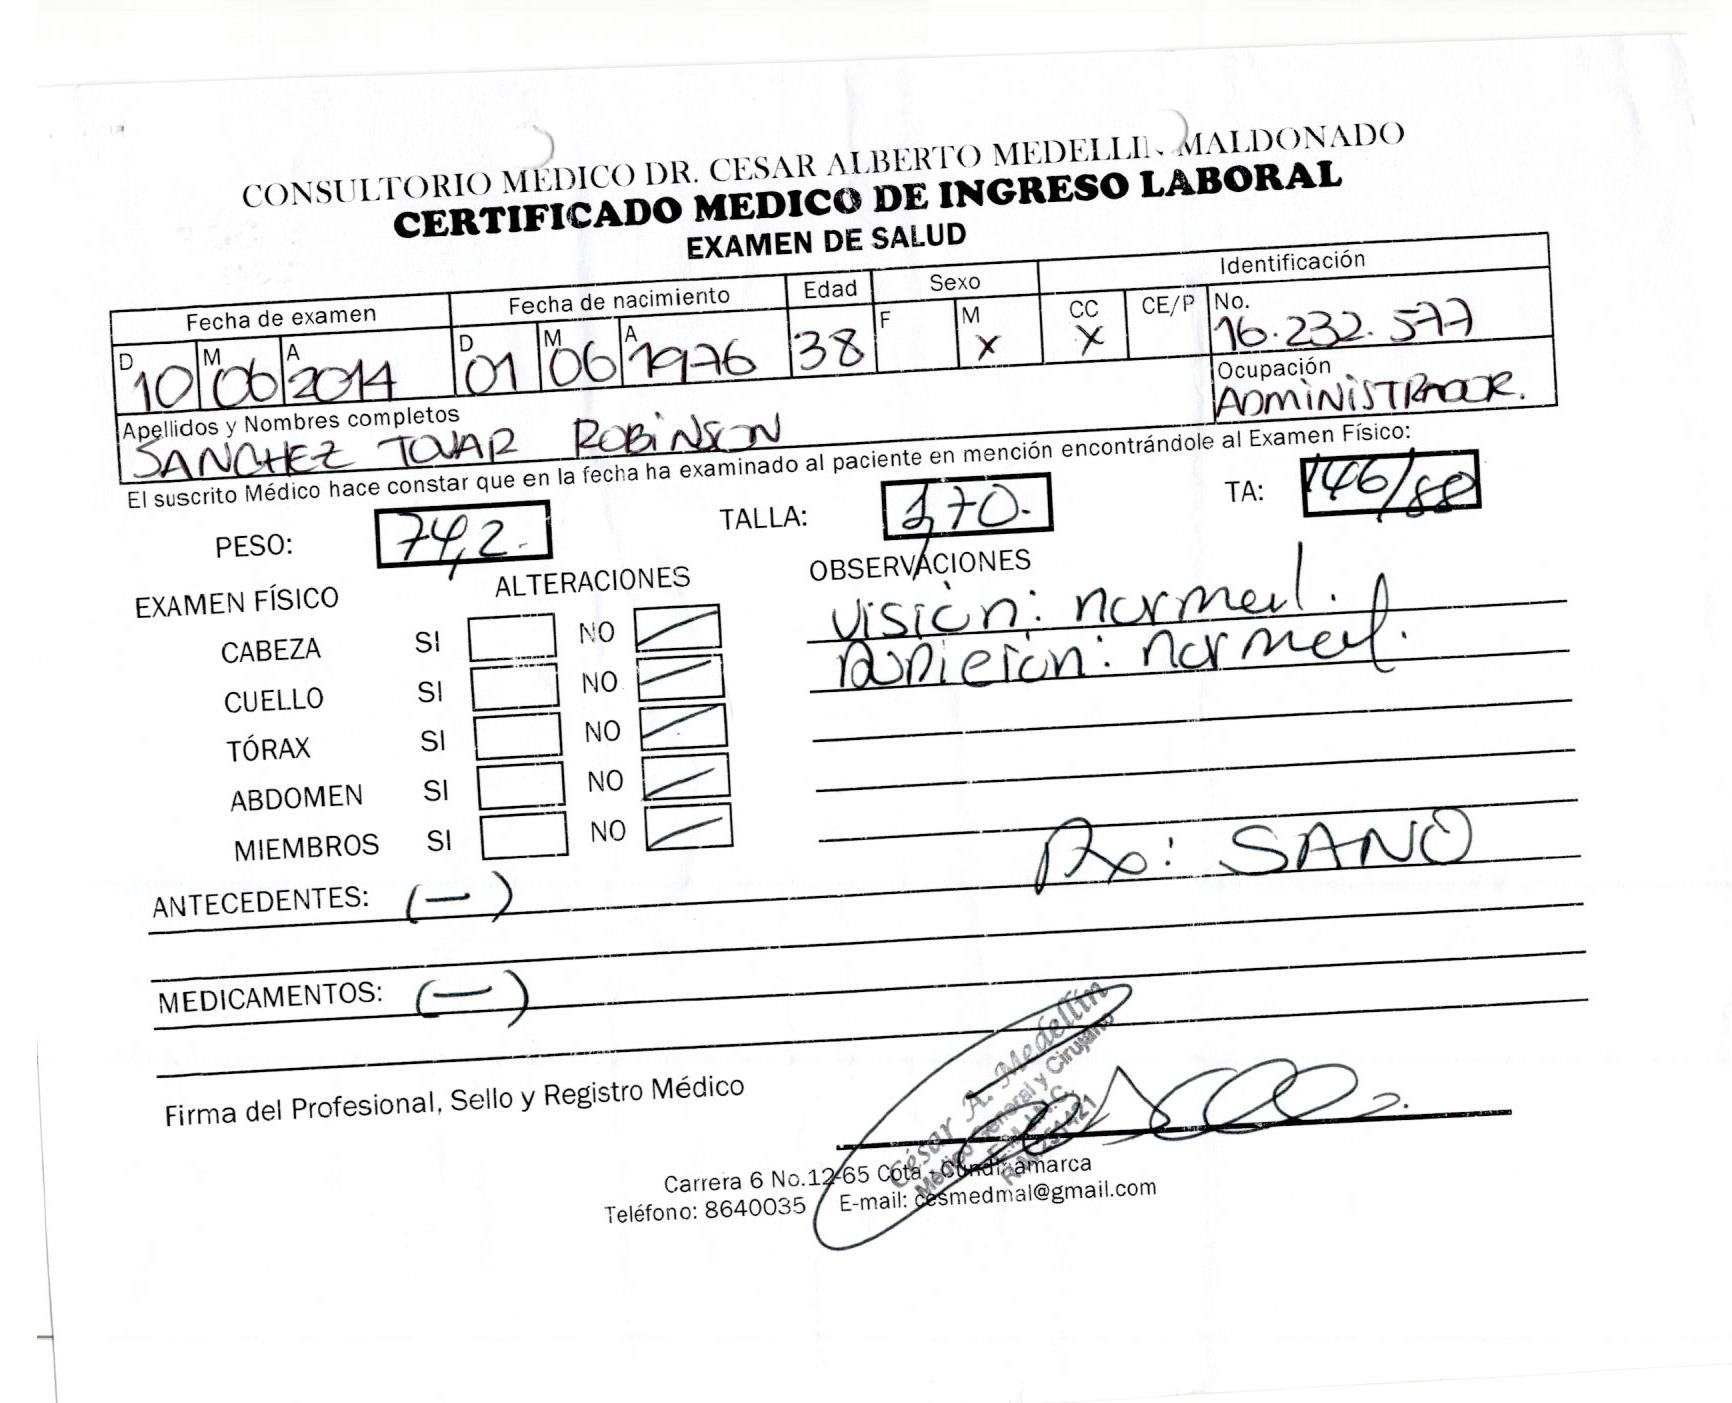 CONSULTORIO MEDICO DR. CESAR ALBERTO MEDELLIN MALDONADO
CERTIFICADO MEDICO DE INGRESO LABORAL
EXAMEN DE SALUD
Fecha de examen Fecha de nacimiento Edad Sexo Identificación
D 10 M 06 A 2014 D 01 M 06 A 1976 38 F M X CC X CE/P No. 16.232.577
Apellidos y Nombres completos Ocupación
SANCHEZ TOVAR ROBINSON ADMINISTRADOR.
El suscrito Médico hace constar que en la fecha ha examinado al paciente en mención encontrándole al Examen Físico:
PESO: 74,2. TALLA: 1,70. TA: 146/88
EXAMEN FÍSICO ALTERACIONES OBSERVACIONES
CABEZA SI NO visión: normal.
CUELLO SI NO Audición: normal.
TÓRAX SI NO
ABDOMEN SI NO
MIEMBROS SI NO
Dx: SANO
ANTECEDENTES: (-)
MEDICAMENTOS: (-)
Firma del Profesional, Sello y Registro Médico
César A. Medellín
Médico General y Cirujano
Carrera 6 No.12-65 Cota - Cundinamarca
Teléfono: 8640035 E-mail: cesmedmal@gmail.com